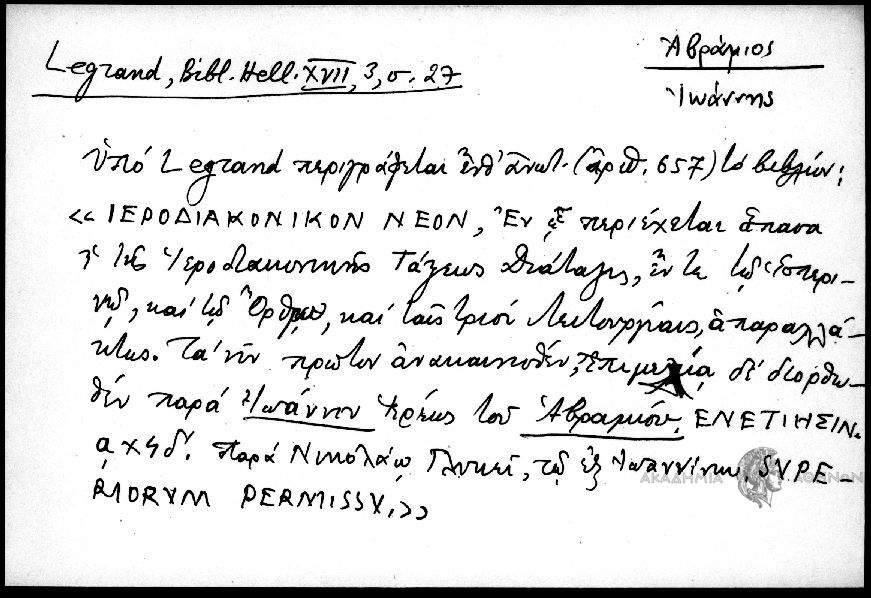 Legrand, Bibl. Hell. XVII, 3, σ. 27
Ἀβράμιος
Ἰωάννης
Ὑπό Legrand περιγράφεται ἐνθ' ἀνωτ. (ἀριθ. 657) τό βιβλίον:
«ΙΕΡΟΔΙΑΚΟΝΙΚΟΝ ΝΕΟΝ, Ἐν ᾧ περιέχεται ἅπασα
ἡ τῆς Ἱεροδιακονικῆς Τάξεως Διάταξις, ἔν τε τῷ Ἑσπερι-
νῷ, καί τῷ Ὄρθρῳ, καί ταῖς τρισί Λειτουργίαις, ἀπαραλλά-
κτως. Τά νῦν πρῶτον ἀνακαινισθέν, Ἐπιμελείᾳ δέ διορθω-
θέν παρά Ἰωάννου Ἱερέως τοῦ Ἀβραμίου. ΕΝΕΤΙΗΣΙΝ.
αχϟδ'. Παρά Νικολάῳ Γλυκεῖ, τῷ ἐξ Ἰωαννίνων. SVPE-
RIORVM PERMISSV.»
ΑΚΑΔΗΜΙΑ ΑΘΗΝΩΝ